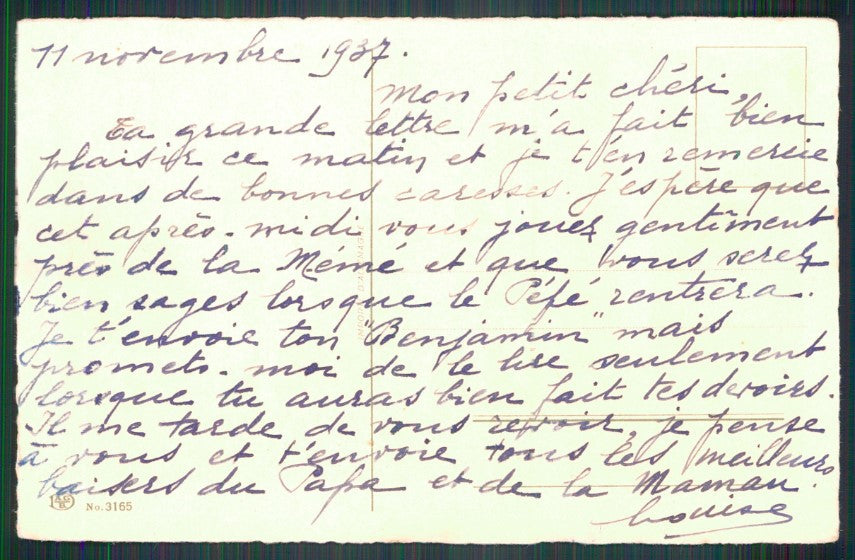 11 novembre 1937.
Mon petit chéri,
Ta grande lettre m'a fait bien
plaisir ce matin et je t'en remercie
dans de bonnes caresses. J'espère que
cet après-midi vous jouez gentîment
près de la Mémé et que vous serez
bien sages lorsque le Pépé rentrera.
Je t'envoie ton "Benjamin" mais
promets-moi de le lire seulement
lorsque tu auras bien fait tes devoirs.
Il me tarde de vous revoir, je pense
à vous et t'envoie tous les meilleurs
baisers du Papa et de la Maman.
Louise
No. 3165